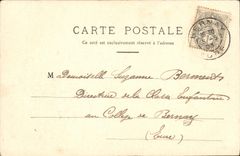 CARTE POSTALE
Ce côté est exclusivement réservé à l'adresse
Mademoiselle Suzanne
Directrice de la Classe Enfantine
au Collège de Bernay
(Eure)